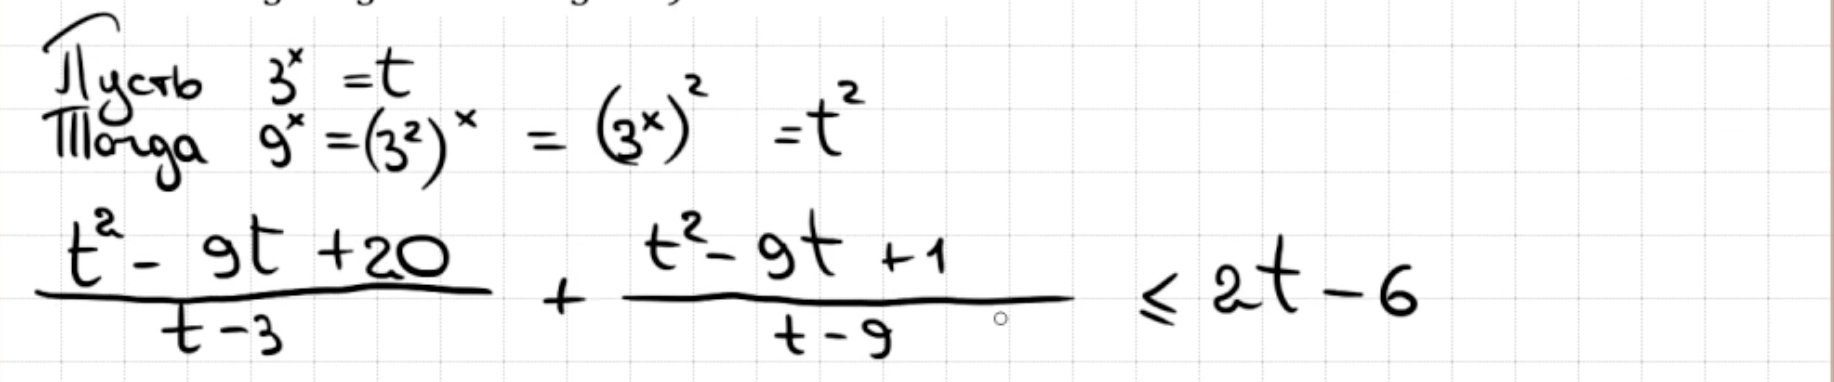 Пусть 3ˣ = t
Тогда 9ˣ = (3²)ˣ = (3ˣ)² = t²
(t² - 9t + 20)/(t - 3) + (t² - 9t + 1)/(t - 9) ≤ 2t - 6